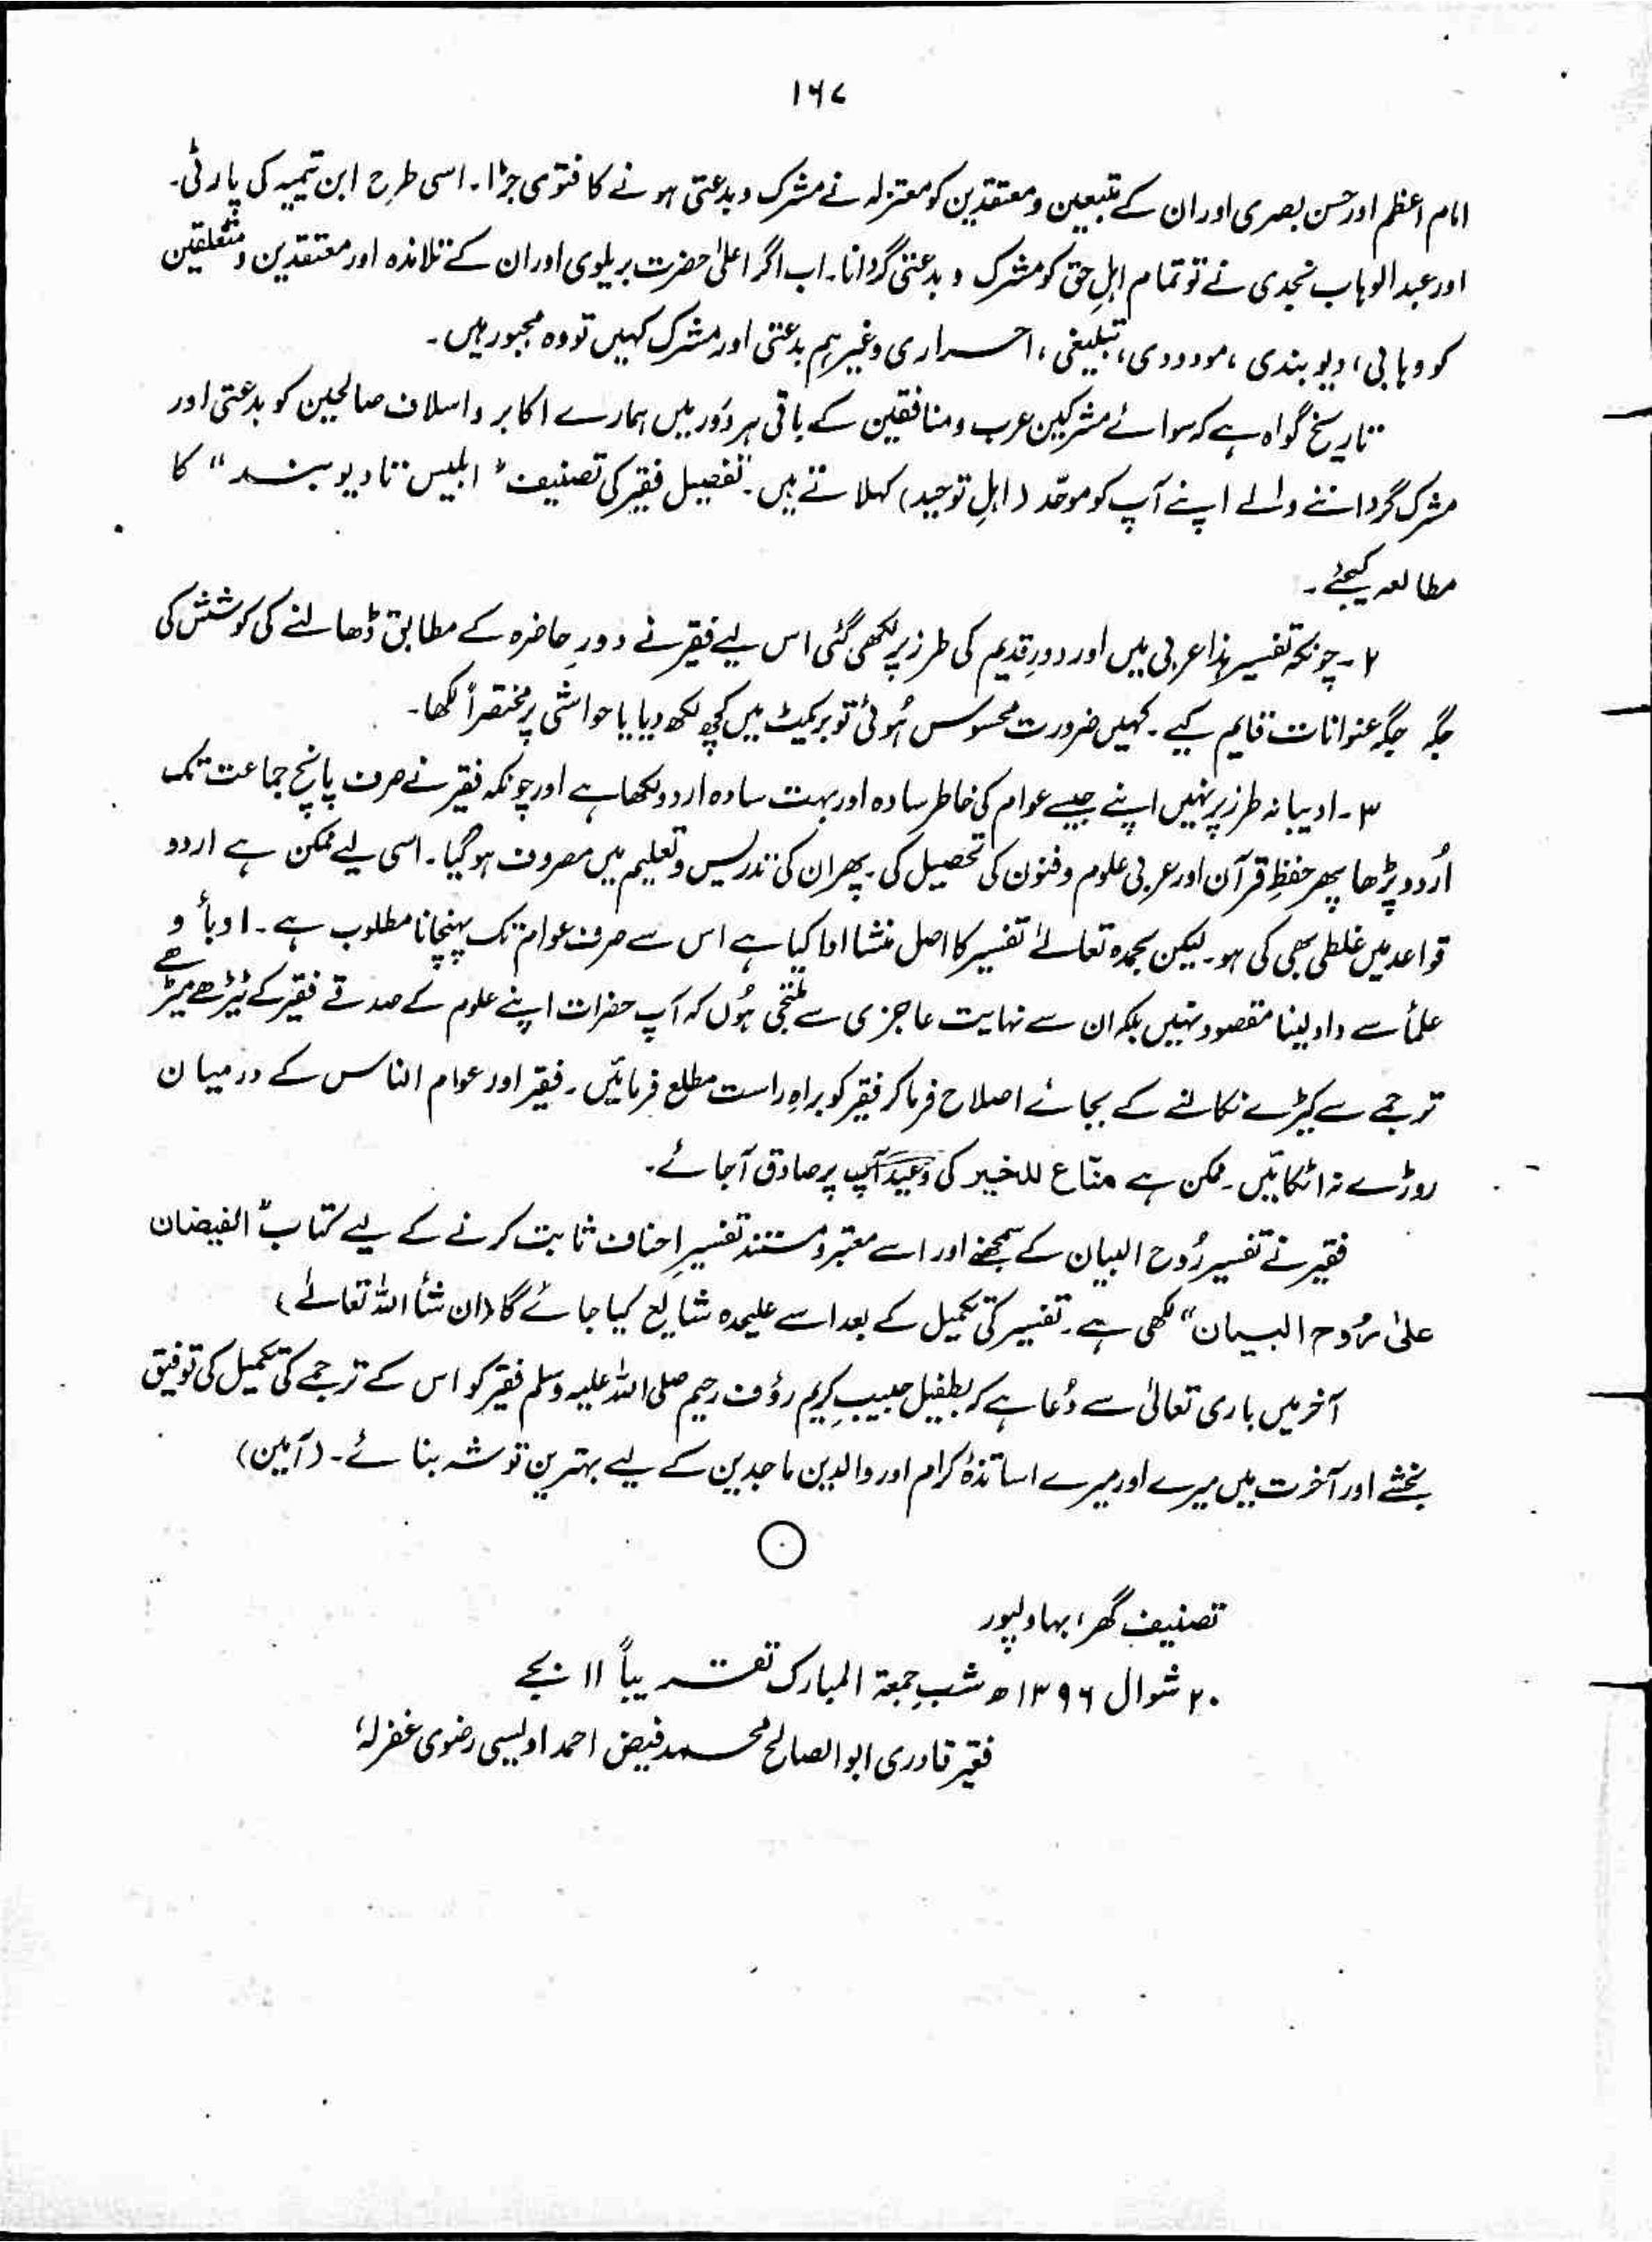 ۱۶۷
امام اعظم اور حسن بصری اور ان کے متبعین و معتقدین کو معتزلہ نے مشرک و بدعتی ہونے کا فتوٰی جڑا۔ اسی طرح ابن تیمیہ کی پارٹی۔
اور عبد الوہاب نجدی نے تو تمام اہلِ حق کو مشرک و بدعتی گردانا۔ اب اگر اعلیٰ حضرت بریلوی اور ان کے تلامذہ اور معتقدین و متعلقین
کو وہابی، دیوبندی، مودودی، تبلیغی، احراری وغیرہم بدعتی اور مشرک کہیں تو وہ مجبور ہیں۔
تاریخ گواہ ہے کہ سوائے مشرکین عرب و منافقین کے باقی ہر دَور میں ہمارے اکابر و اسلاف صالحین کو بدعتی اور
مشرک گرداننے والے اپنے آپ کو موحّد (اہلِ توحید) کہلاتے ہیں۔ تفصیل فقیر کی تصنیف "ابلیس تا دیوبند" کا
مطالعہ کیجئے۔
۲۔ چونکہ تفسیر ہذا عربی میں اور دورِ قدیم کی طرز پر لکھی گئی اس لیے فقیر نے دورِ حاضرہ کے مطابق ڈھالنے کی کوشش کی
جگہ جگہ عنوانات قایم کیے۔ کہیں ضرورت محسوس ہُوئی تو بریکٹ میں کچھ لکھ دیا یا حواشی پر مختصراً لکھا۔
۳۔ ادیبانہ طرز پر نہیں اپنے جیسے عوام کی خاطر سادہ اور بہت سادہ اردو لکھا ہے اور چونکہ فقیر نے صرف پانچ جماعت تک
اُردو پڑھا پھر حفظِ قرآن اور عربی علوم و فنون کی تحصیل کی۔ پھر ان کی تدریس و تعلیم میں مصروف ہو گیا۔ اسی لیے ممکن ہے اردو
قواعد میں غلطی بھی کی ہو۔ لیکن بحمدہ تعالےٰ تفسیر کا اصل منشا ادا کیا ہے اس سے صرف عوام تک پہنچانا مطلوب ہے۔ ادبأ و
علمأ سے داد لینا مقصود نہیں بلکہ ان سے نہایت عاجزی سے ملتجی ہُوں کہ آپ حضرات اپنے علوم کے صدقے فقیر کے ٹیڑھے میڑھے
ترجمے سے کیڑے نکالنے کے بجائے اصلاح فرما کر فقیر کو براہِ راست مطلع فرمائیں۔ فقیر اور عوام الناس کے درمیان
روڑے نہ اٹکائیں۔ ممکن ہے منّاع للخیر کی وعید آپ پر صادق آجائے۔
فقیر نے تفسیر رُوح البیان کے سمجھنے اور اسے معتبر و مستند تفسیرِ احناف ثابت کرنے کے لیے کتاب "الفیضان
علیٰ رُوح البیان" لکھی ہے۔ تفسیر کی تکمیل کے بعد اسے علیحدہ شایع کیا جائے گا (ان شأ اللہ تعالےٰ)
آخر میں باری تعالیٰ سے دُعا ہے کہ بطفیل حبیبِ کریم رؤف رحیم صلی اللہ علیہ وسلم فقیر کو اس کے ترجمے کی تکمیل کی توفیق
بخشے اور آخرت میں میرے اور میرے اساتذۂ کرام اور والدین ماجدین کے لیے بہترین توشہ بنائے۔ (آمین)
تصنیف گھر، بہاولپور
۲۰ شوال ۱۳۹۶ھ شبِ جمعۃ المبارک تقریباً ۱۱ بجے
فقیر قادری ابو الصالح محمد فیض احمد اویسی رضوی غفرلہٗ